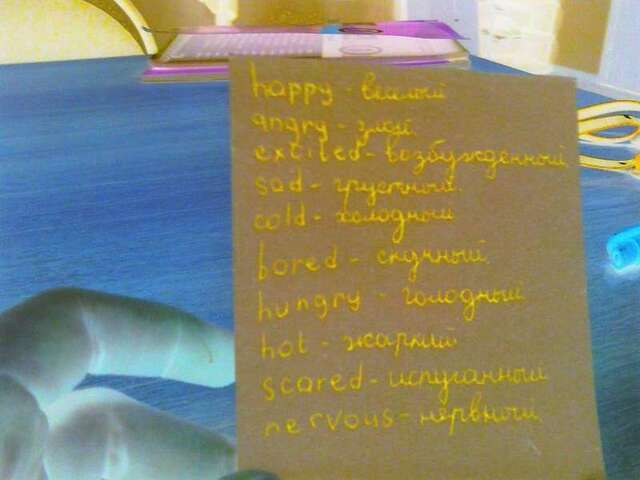 happy - веселый
angry - злой
excited - возбужденный
sad - грустный
cold - холодный
bored - скучный
hungry - голодный
hot - жаркий
scared - испуганный
nervous - нервный